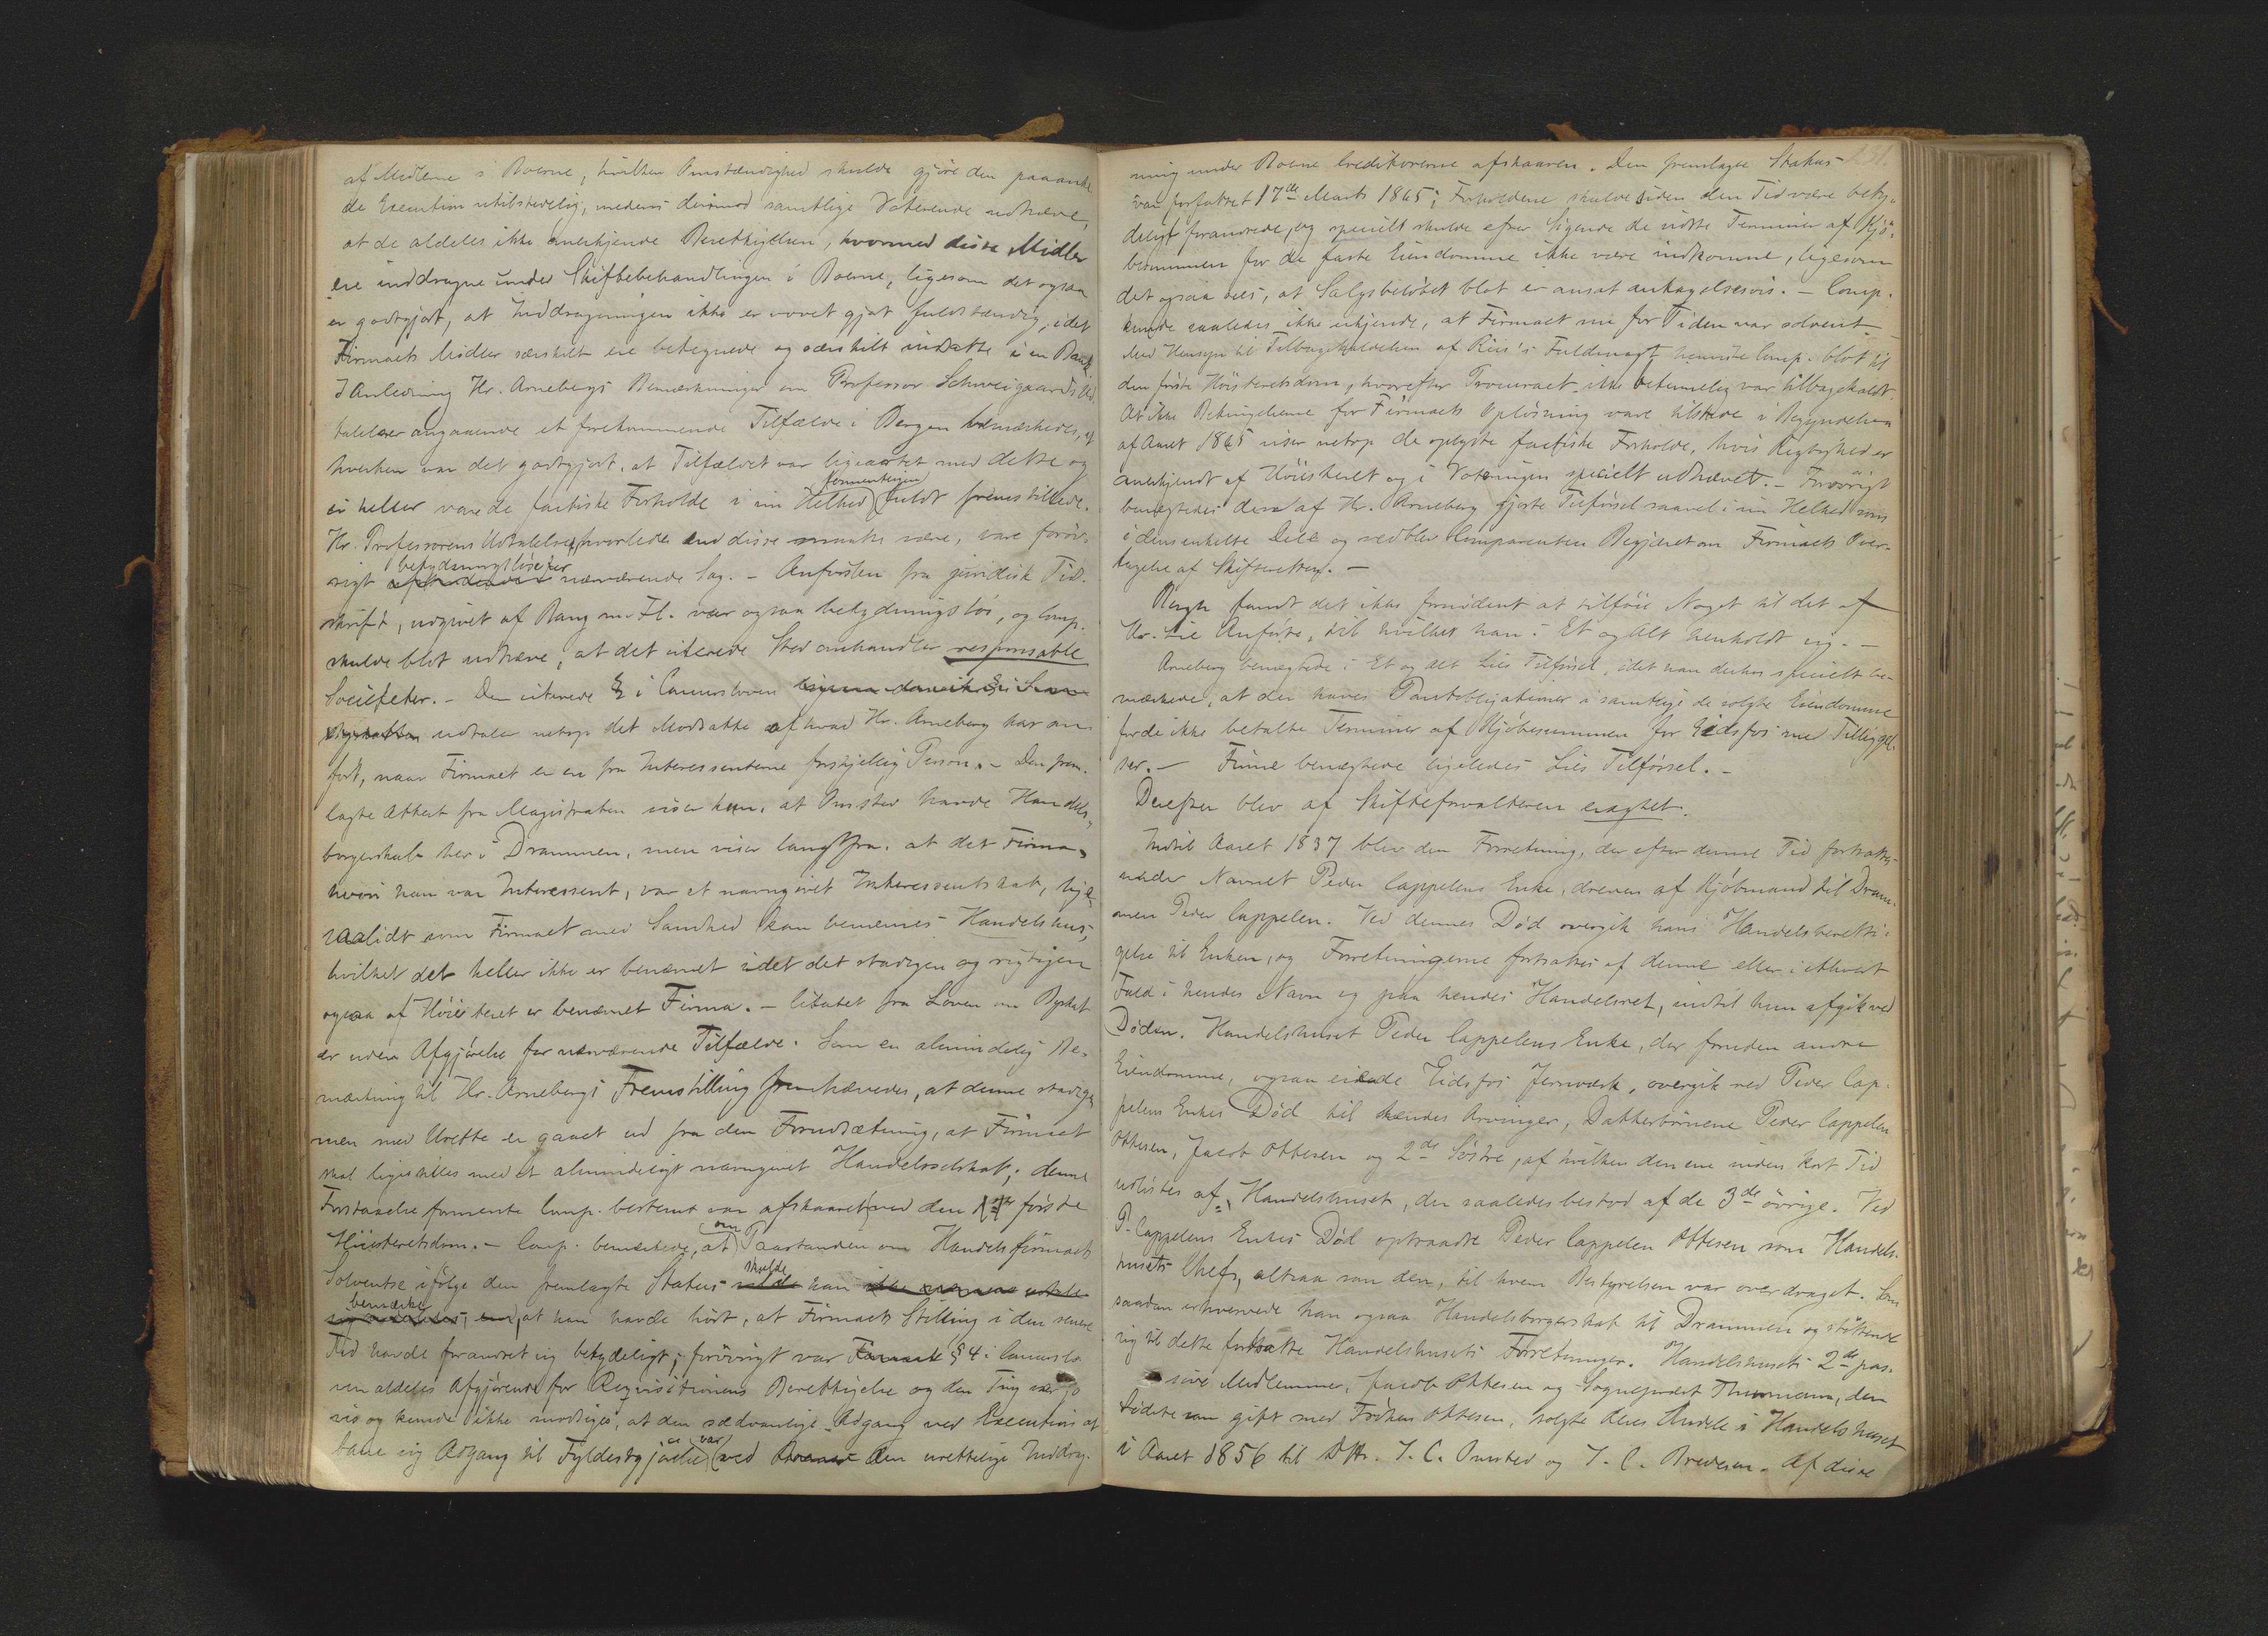 af Midlerne i Boerne, hvilken Omstændighed skulde gjøre den paaankede
de Execution utilstedelig, medens derimod samtlige Voterende udhæve,
at de aldeles ikke anerkjende Berettigelsen, hvormed disse Midler
ere inddragne under Skiftebehandlingen i Boerne, ligesom det ogsaa
er godtgjort, at Inddragningen ikke er vovet gjort fuldstændig, idet
Firmaets Midler særskilt ere betegnede og særskilt indsatte i en Bank
I Anledning Hr. Arnebergs Bemærkninger om Professor Schweigaards Ud-
talelser angaaende et forekommende Tilfælde i Bergen bemærkedes, at
hverken var det godtgjort, at Tilfældet var ligeartet med dette og
ei heller vare de factiske Forholde i sin Helhed formentligen fuldt fremstillede.
Hr. Professorens Udtalelser, hvorledes end disse maatte være, vare forøv-
rigt betydningsløse for nærværende Sag. – Anførslen fra juridisk Tid-
skrift, udgivet af Bang m. Fl. var ogsaa betydningsløs, og Comp.
skulde blot udhæve, at det citerede Sted omhandler responsable
Societeter. – Den citerede § i Concursloven
udtaler netop det Modsatte af hvad Hr. Arneberg har an-
ført, naar Firmaet er en fra Interessenterne forskjellig Person. – Den frem-
lagte Attest fra Magistraten viser kun, at Omsted havde Handels-
borgerskab her i Drammen, men viser langtfra, at det Firma,
hvori han var Interessent, var et navngivet Interessentskab, lige-
saalidt som Firmaet med Sandhed kan benævnes Handelshus,
hvilket det heller ikke er benævnt idet det stadigen og rigtigen
ogsaa af Høiesteret er benævnt Firma. – Citatet fra Loven om Byskat
er uden Afgjørelse for nærværende Tilfælde. Som en almindelig Be-
mærkning til Hr. Arnebergs Fremstilling fremhævedes, at denne stadigen
men med Urette er gaaet ud fra den Forudsætning, at Firmaet
skal ligestilles med et almindeligt navngivet Handelsselskab; denne
Forstaaelse formente Comp. bestemt var afskaaret ved den første
Høiesteretsdom. – Comp. bemærkede, at om Paastanden om Handelsfirmaets
Solventse ifølge den fremlagte Status skulde han
bemærke, at han havde hørt, at Firmaets Stilling i den senere
Tid havde forandret sig betydeligt; forøvrigt var § 4 i Concurslo-
ven aldeles afgjørende for Requisitionens Berettigelse og den Ting var jo
vis og kunde ikke modsiges, at den sædvanlige Adgang ved Execution at
bane sig Adgang til Fyldestgjørelse var ved den urettelige Inddrag-
ning under Boerne Creditorerne afskaaren. Den fremlagte Status
var forfattet 17de Marts 1865; Forholdene skulde siden den Tid være bety-
deligt forandrede, og specielt skulde efter Sigende de sidste Terminer af Kjø-
besummen for de faste Eiendomme ikke være indkomne, ligesom
det ogsaa sees, at Salgsbeløbet blot er ansat antagelsesvis. – Comp.
kunde saaledes ikke erkjende, at Firmaet nu for Tiden var solvent.
Med Hensyn til Tilbagekaldelsen af Riis's Fuldmagt henviste Comp. blot til
den første Høiesteretsdom, hvorefter Procuraet ikke betimelig var tilbagekaldt.
At ikke Betingelserne for Firmaets Opløsning vare tilstede i Begyndelsen
af Aaret 1865 viser netop de oplyste factiske Forholde, hvis Rigtighed er
anerkjendt af Høiesteret og i Voteringen specielt udhævet. – Forøvrigt
benægtedes den af Hr. Arneberg gjorte Tilførsel saavel i sin Helhed som
i dens enkelte Dele og vedblev Comparenten Begjæret om Firmaets Over-
tagelse af Skifteretten. –
Bergh fandt det ikke fornødent at tilføie Noget til det af
Hr. Lie Anførte, til hvilket han i Et og Alt henholdt sig. –
Arneberg benægtede i Et og Alt Lies Tilførsel, idet han derhos specielt be-
mærkede, at der haves Pantobligationer i samtlige de solgte Eiendomme
for de ikke betalte Terminer af Kjøbesummen for Eidsfos med Tilliggel-
ser. – Finne benægtede ligeledes Lies Tilførsel. –
Derefter blev af Skifteforvalteren eragtet.
Indtil Aaret 1837 blev den Forretning, der efter denne Tid fortsattes
under Navnet Peder Cappelens Enke, dreven af Kjøbmand til Dram-
men Peder Cappelen. Ved dennes Død overgik hans Handelsberetti-
gelse til Enken, og Forretningerne fortsattes af denne eller i ethvert
Fald i hendes Navn og paa hendes Handelsret, indtil hun afgik ved
Døden. Handelshuset Peder Cappelens Enke, der foruden andre
Eiendomme, ogsaa eiede Eidsfos Jernværk, overgik ved Peder Cap-
pelens Enkes Død til hendes Arvinger, Datterbørnene Peder Cappelen
Ottesen, Jacob Ottesen og 2de Søstre, af hvilken den ene inden kort Tid
udløstes af Handelshuset, der saaledes bestod af de 3de øvrige. Ved
P. Cappelens Enkes Død optraadte Peder Cappelen Ottesen som Handels-
husets Chef, altsaa som den, til hvem Bestyrelsen var overdraget. Som
saadan erhvervede han ogsaa Handelsborgerskab til Drammen og støttende
sig til dette fortsatte Handelshusets Forretninger. Handelshusets 2de pas-
sive Medlemmer, Jacob Ottesen og Sognepræst Thurmann, den
sidste som gift med Frøken Ottesen, solgte deres Andele i Handelshuset
i Aaret 1856 til DHr. J. C. Omsted og J. C. Bredesen. Af disse